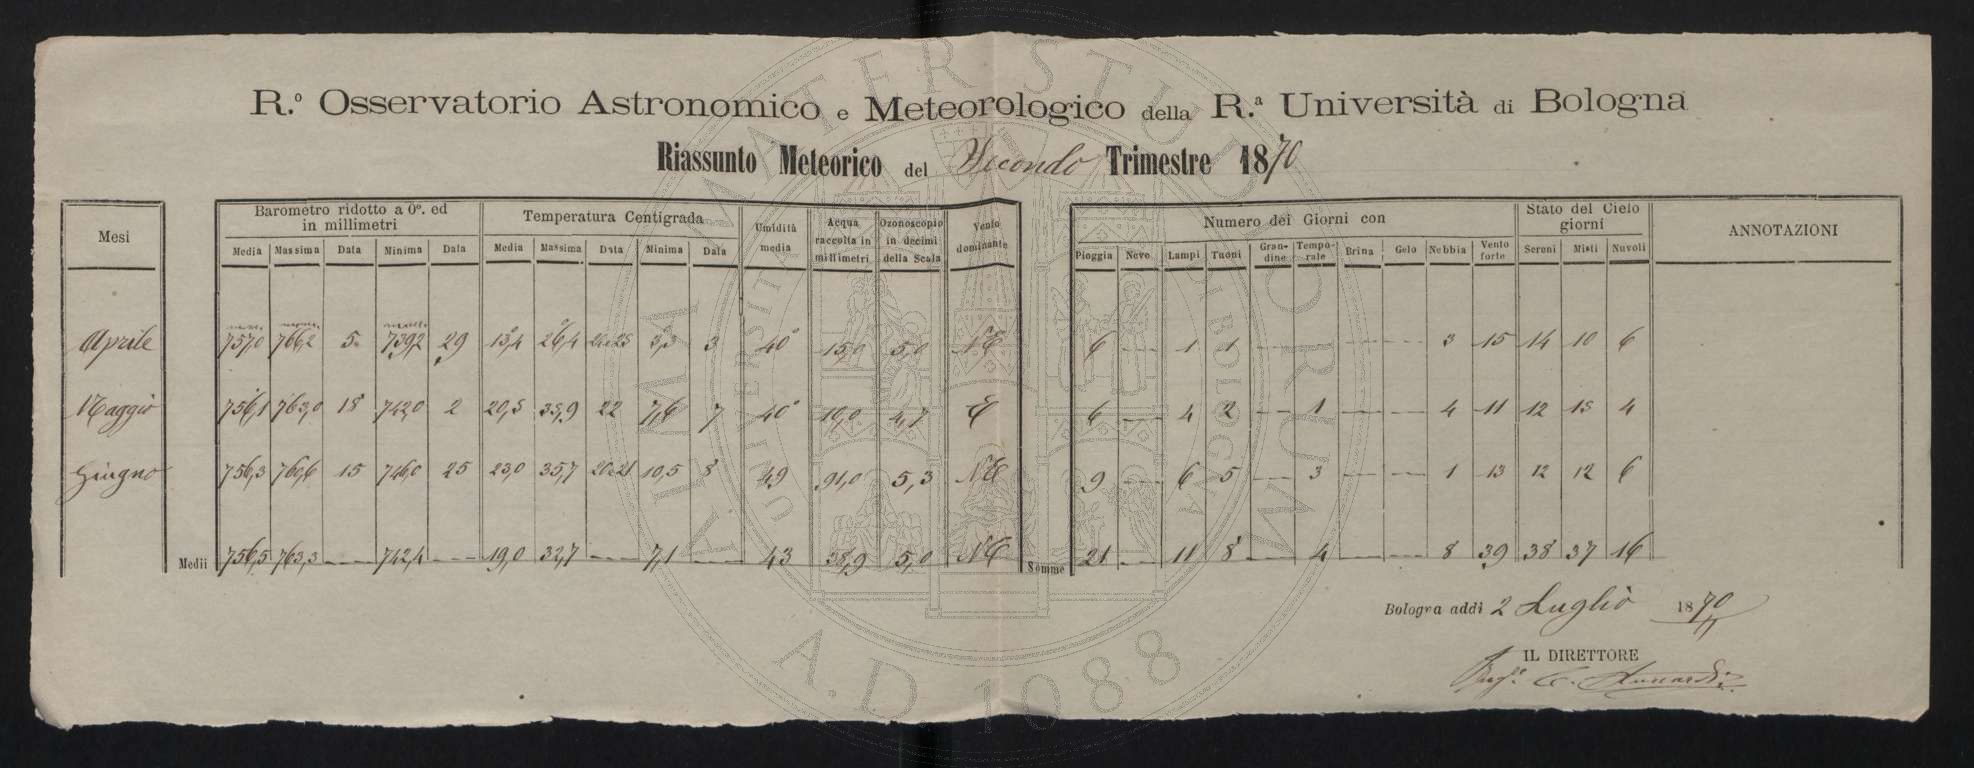 R.º Osservatorio Astronomico e Meteorologico della R.ª Università di Bologna
Riassunto Meteorico del Secondo Trimestre 1870
Mesi | Barometro ridotto a 0º. ed in millimetri | Temperatura Centigrada | Umidità media | Acqua raccolta in millimetri | Ozonoscopio in decimi della Scala | Vento dominante | Numero dei Giorni con | Stato del Cielo giorni | ANNOTAZIONI
Media | Massima | Data | Minima | Data | Media | Massima | Data | Minima | Data | Pioggia | Neve | Lampi | Tuoni | Gran-dine | Tempo-rale | Brina | Gelo | Nebbia | Vento forte | Sereni | Misti | Nuvoli
Aprile 757,0 766,2 5 739,2 29 13,4 26,4 24e25 3,3 3 40° 15,0 5,0 NE 6 — 1 1 — — — — 3 15 14 10 6
Maggio 756,1 763,0 18 742,0 2 20,5 35,9 22 7,6 7 40° 10,0 4,7 E 6 — 4 2 — 1 — — 4 11 12 15 4
Giugno 756,3 760,6 15 746,0 25 23,0 35,7 20e21 10,5 8 49 91,0 5,3 NE 9 — 6 5 — 3 — — 1 13 12 12 6
Medii 756,5 763,3 — 742,4 — 19,0 32,7 — 7,1 — 43 38,9 5,0 NE Somme 21 — 11 8 — 4 — — 8 39 38 37 16
Bologna addi 2 Luglio 1870
IL DIRETTORE
ALMA MATER STUDIORUM
A.D. 1088